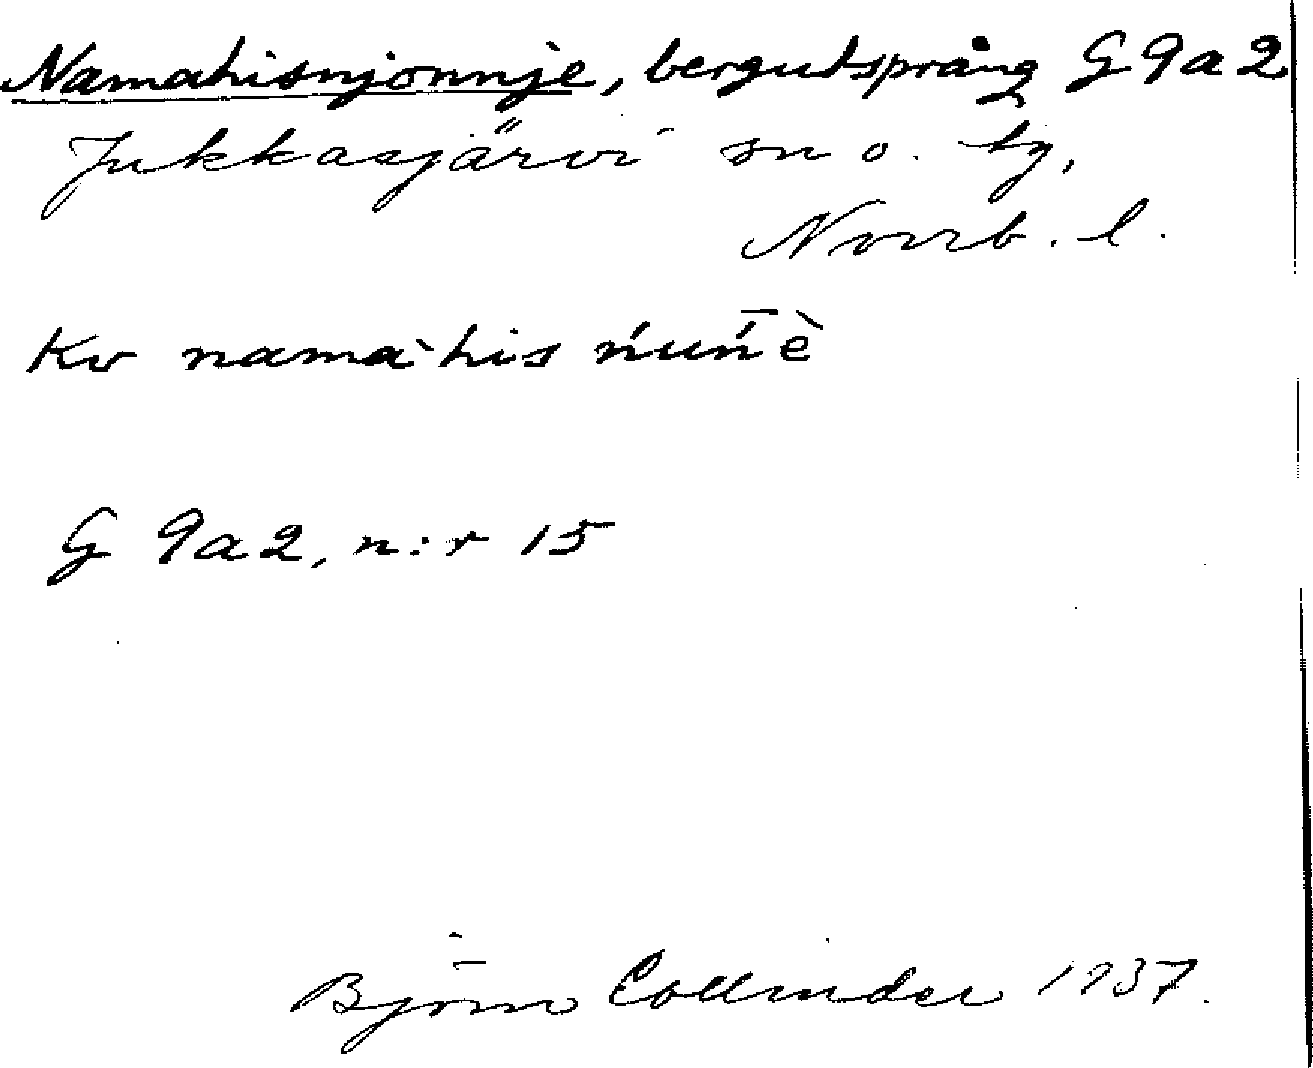 Namahisnjonnje, bergutsprång G 9a2
Jukkasjärvi sn o. tg,
Norrb. l.
Kv namàhis ńuńˉè
G 9a2, n:r 15
Björn Collinder 1937.